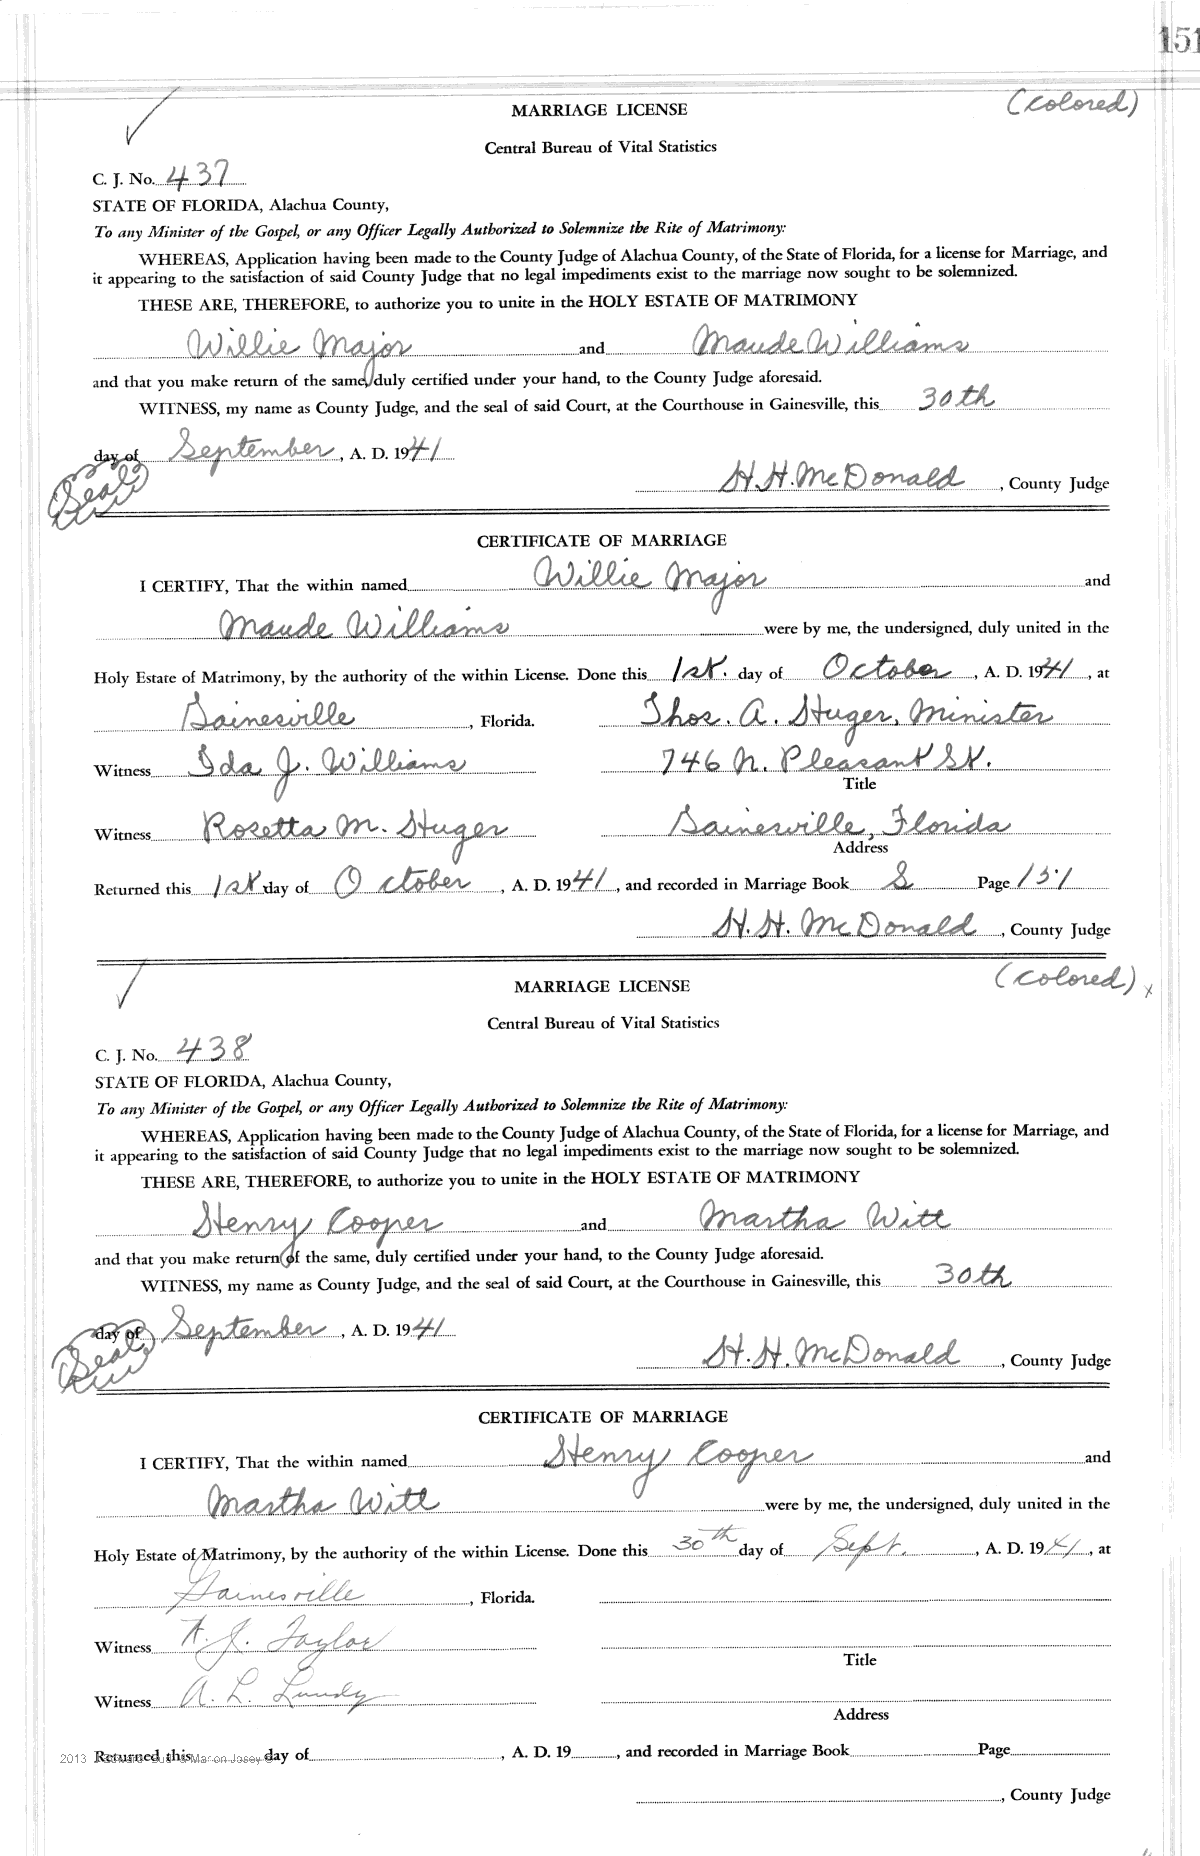 151
(colored)
MARRIAGE LICENSE
Central Bureau of Vital Statistics
C. J. No. 437
STATE OF FLORIDA, Alachua County,
To any Minister of the Gospel, or any Officer Legally Authorized to Solemnize the Rite of Matrimony:
WHEREAS, Application having been made to the County Judge of Alachua County, of the State of Florida, for a license for Marriage, and
it appearing to the satisfaction of said County Judge that no legal impediments exist to the marriage now sought to be solemnized.
THESE ARE, THEREFORE, to authorize you to unite in the HOLY ESTATE OF MATRIMONY
Willie Major and Maude Williams
and that you make return of the same, duly certified under your hand, to the County Judge aforesaid.
WITNESS, my name as County Judge, and the seal of said Court, at the Courthouse in Gainesville, this 30th
day of September, A. D. 1941
(Seal)
H. H. McDonald, County Judge
CERTIFICATE OF MARRIAGE
I CERTIFY, That the within named Willie Major and
Maude Williams were by me, the undersigned, duly united in the
Holy Estate of Matrimony, by the authority of the within License. Done this 1st. day of October, A. D. 1941, at
Gainesville, Florida. Thos. A. Huger, Minister
Witness Ida J. Williams 746 N. Pleasant St.
Title
Witness Rosetta M. Huger Gainesville, Florida
Address
Returned this 1st day of October, A. D. 1941, and recorded in Marriage Book S Page 151
H. H. McDonald, County Judge
(colored) x
MARRIAGE LICENSE
Central Bureau of Vital Statistics
C. J. No. 438
STATE OF FLORIDA, Alachua County,
To any Minister of the Gospel, or any Officer Legally Authorized to Solemnize the Rite of Matrimony:
WHEREAS, Application having been made to the County Judge of Alachua County, of the State of Florida, for a license for Marriage, and
it appearing to the satisfaction of said County Judge that no legal impediments exist to the marriage now sought to be solemnized.
THESE ARE, THEREFORE, to authorize you to unite in the HOLY ESTATE OF MATRIMONY
Henry Cooper and Martha Witt
and that you make return of the same, duly certified under your hand, to the County Judge aforesaid.
WITNESS, my name as County Judge, and the seal of said Court, at the Courthouse in Gainesville, this 30th
day of September, A. D. 1941
(Seal)
H. H. McDonald, County Judge
CERTIFICATE OF MARRIAGE
I CERTIFY, That the within named Henry Cooper and
Martha Witt were by me, the undersigned, duly united in the
Holy Estate of Matrimony, by the authority of the within License. Done this 30th day of Sept., A. D. 1941, at
Gainesville, Florida.
Witness J. Taylor
Title
Witness A. L. Lundy
Address
Returned this day of , A. D. 19 , and recorded in Marriage Book Page
2013 & Marion Josey ©
, County Judge